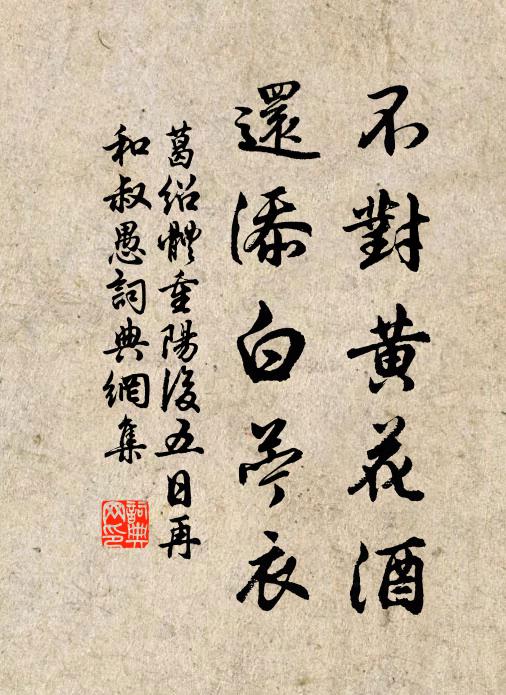 不對黃花酒
還添白苧衣
葛紹體重陽後五日再
和叔愚詞典網集
詞典
網印